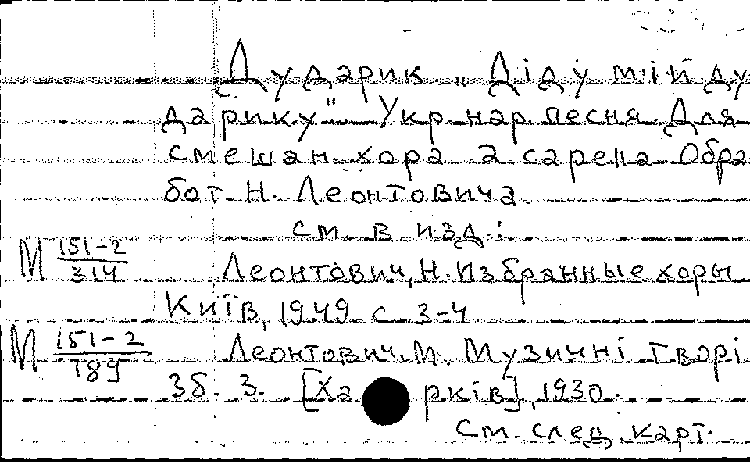 Дударик „Діду мій ду
дарику" Укр. нар. песня Для
смешан хора a capena Обра
бот. Н. Леонтовича
см в изд.:
М 151-2/314 Леонтович, Н. Избранные хоры
Київ, 1949 с 3-4
М 151-2/789 Леонтович. М. Музичні творі
Зб. 3. [Харків], 1930.
см. след. карт.